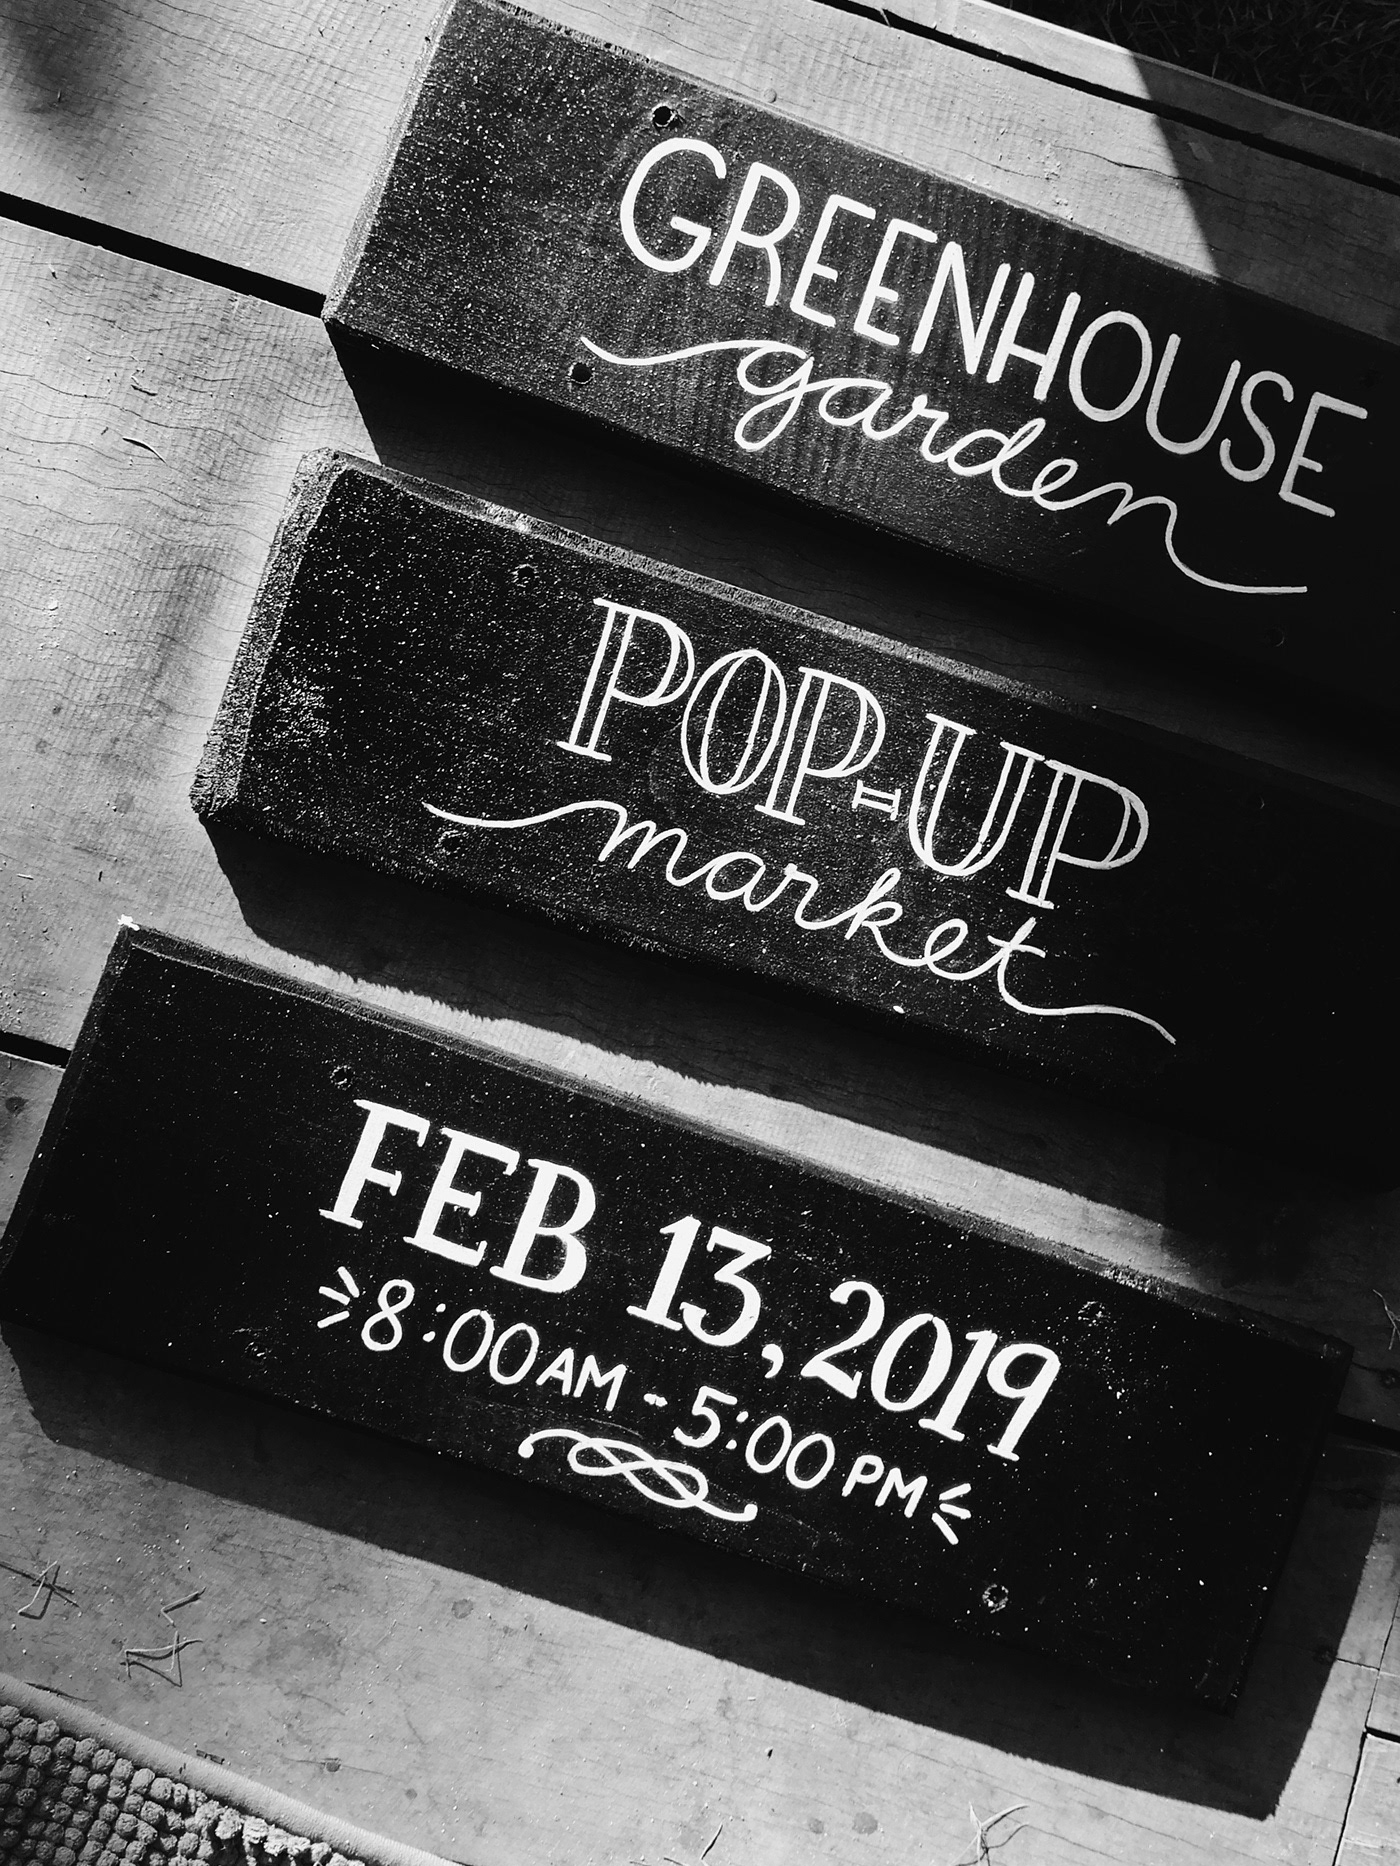 GREENHOUSE
garden
POP-UP
market
FEB 13, 2019
8:00AM - 5:00 PM